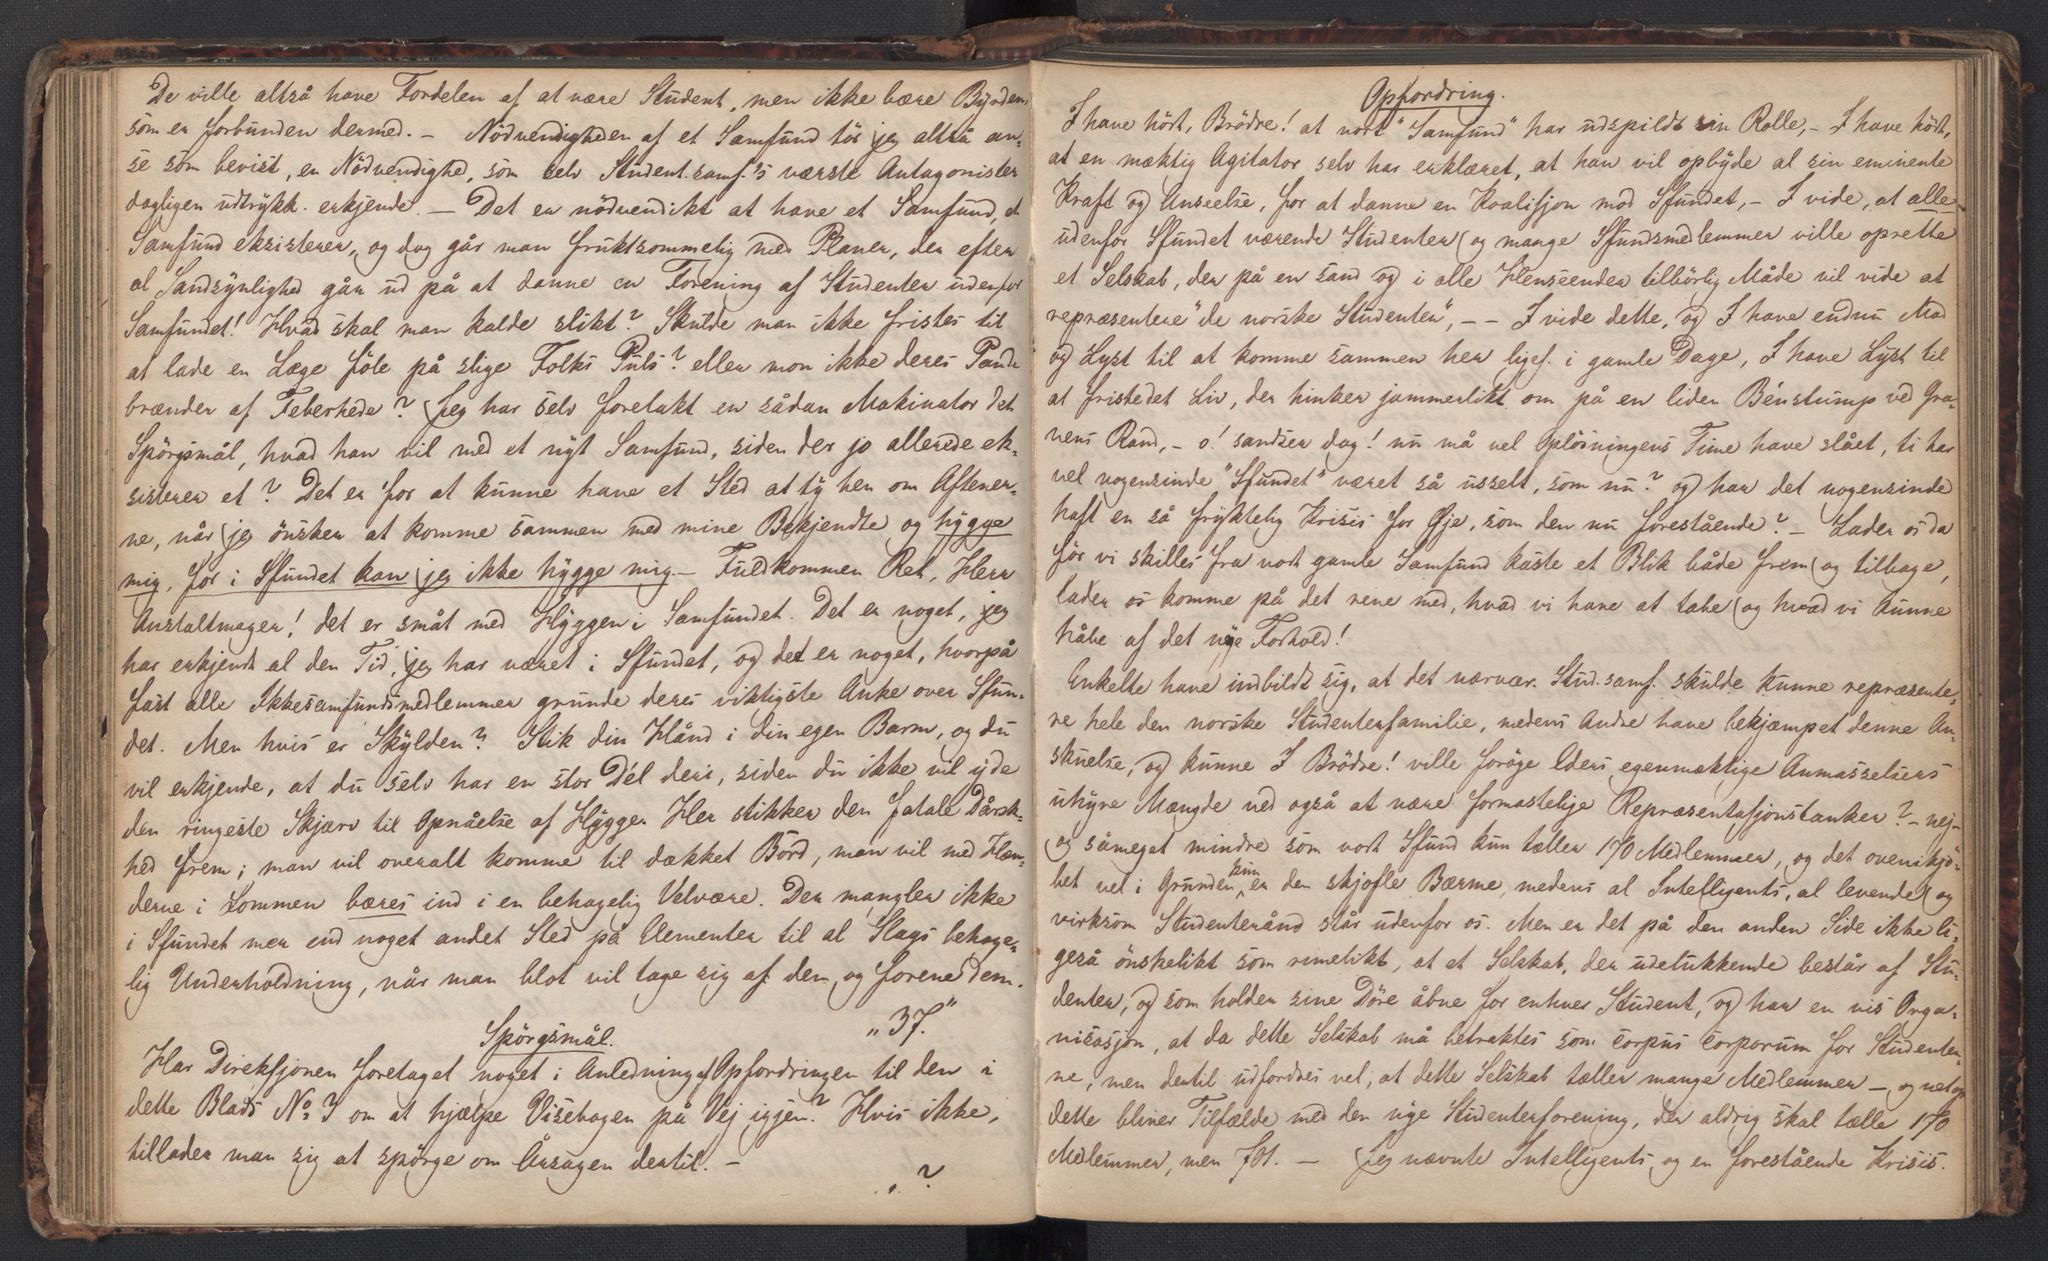 De ville altså have Fordelen af at være Student, men ikke bære Byrden,
som er forbunden dermed. – Nödvendigheden af et Samfund tör jeg altså an-
se som bevist, en Nödvendighed, som selv Student.samf.'s værste Antagonister
dagligen udtrykk. erkjende. – Det er nödvendikt at have et Samfund, et
Samfund eksisterer, og dog går man fruktsommelig med Planer, der efter
al Sandsynlighed går ud på at danne en Forening af Studenter udenfor
Samfundet! Hvad skal man kalde slikt? Skulde man ikke fristes til
at lade en Læge föle på slige Folks Puls? eller mon ikke deres Pande
brænder af Feberhede? Jeg har selv foretakt en sådan Makinator det
Spörgsmål, hvad han vil med et nyt Samfund, siden der jo allerede ek-
sisterer et? Det er for at kunne have et Sted at ty hen om Aftener-
ne, når jeg önsker at komme sammen med mine Bekjendte og hygge
mig, for i Sfundet kan jeg ikke hygge mig. – Fuldkommen Ret, Herr
Anstaltmager! det er småt med Hyggen i Samfundet. Det er noget, jeg
har erkjendt al den Tid, jeg har været i Sfundet, og det er noget, hvorpå
fast alle Ikkesamfundsmedlemmer grunde deres viktigste Anke over Sfun-
det. Men hvis er Skylden? Stik din Hånd i din egen Barm, og du
vil erkjende, at du selv har en stor Dél deri, siden du ikke vil yde
den ringeste Skjærv til Opnåelse af Hygge. Her stikker den fatale Dårsk-
hed frem; man vil overalt komme til dækket Bord, man vil med Hæn-
derne i Lommen bæres ind i en behagelig Velvære. Der mangler ikke
i Sfundet mer end noget andet Sted på Elementer til al Slags behage-
lig Underholdning, når man blot vil tage sig af dem og forene dem.
„37."
Spörgsmål.
Har Direksjonen foretaget noget i Anledning af Opfordringen til den i
dette Blads No 3 om at hjælpe Visebogen på Vej igjen? Hvis ikke,
tillader man sig at spörge om Årsagen dertil. –
. . ?
Opfordring.
I have hört, Brödre! at vort "Samfund" har udspildt sin Rolle, – I have hört,
at en mæktig Agitator selv har erklæret, at han vil opbyde al sin eminente
Kraft og Anseelse, for at danne en Koalisjon mod Sfundet, – I vide, at alle
udenfor Sfundet værende Studenter og mange Sfundsmedlemmer ville oprette
et Selskab, der på en sand og i alle Henseender tilbörlig Måde vil vide at
repræsentere "de norske Studenter", – – I vide dette, og I have endnu Mod
og Lyst til at komme sammen her ligef. i gamle Dage, I have Lyst til
at friste det Liv, der hinker jammerlikt om på en liden Bénstump ved Gra-
vens Rand, – o! sandser dog! nu må vel Oplösningens Time have slået, ti har
vel nogensinde "Sfundet" været så usselt, som nu? og har det nogensinde
haft en så fryktelig Krisis for Øje, som den nu forestående? – Lader os da
för vi skilles fra vort gamle Samfund kaste et Blik både frem og tilbage,
lader os komme på det rene med, hvad vi have at tabe og hvad vi kunne
håbe af det nye Forhold!
Enkelte have indbildt sig, at det nærvær. Stud.samf. skulde kunne repræsente-
re hele den norske Studenterfamilie, medens Andre have bekjæmpet denne An-
skuelse, og kunne I Brödre! ville foröge Eders egenmæktige Anmasselsers
uhyre Mængde ved også at nære formastelige Repræsentasjonstanker? – nej –
og såmeget mindre som vort Sfund kun tæller 170 Medlemmer, og det ovenikjö-
bet vel i Grunden kun er den skjofle Bærme, medens al Intelligents, al levende og
virksom Studenterånd står udenfor os. Men er det på den anden Side ikke li-
geså önskelikt som rimelikt, at et Selskab, der udelukkende består af Stu-
denter, og som holder sine Döre åbne for enhver Student, og har en vis Orga-
nisasjon, at da dette Selskab må betraktes som corpus corporum for Studenter-
ne, men dertil udfordres vel, at dette Selskab tæller mange Medlemmer – og netop
dette bliver Tilfælde med den nye Studenterforening, der aldrig skal tælle 170
Medlemmer, men 701. – Jeg nævnte Intelligents og en forestående Krisis.